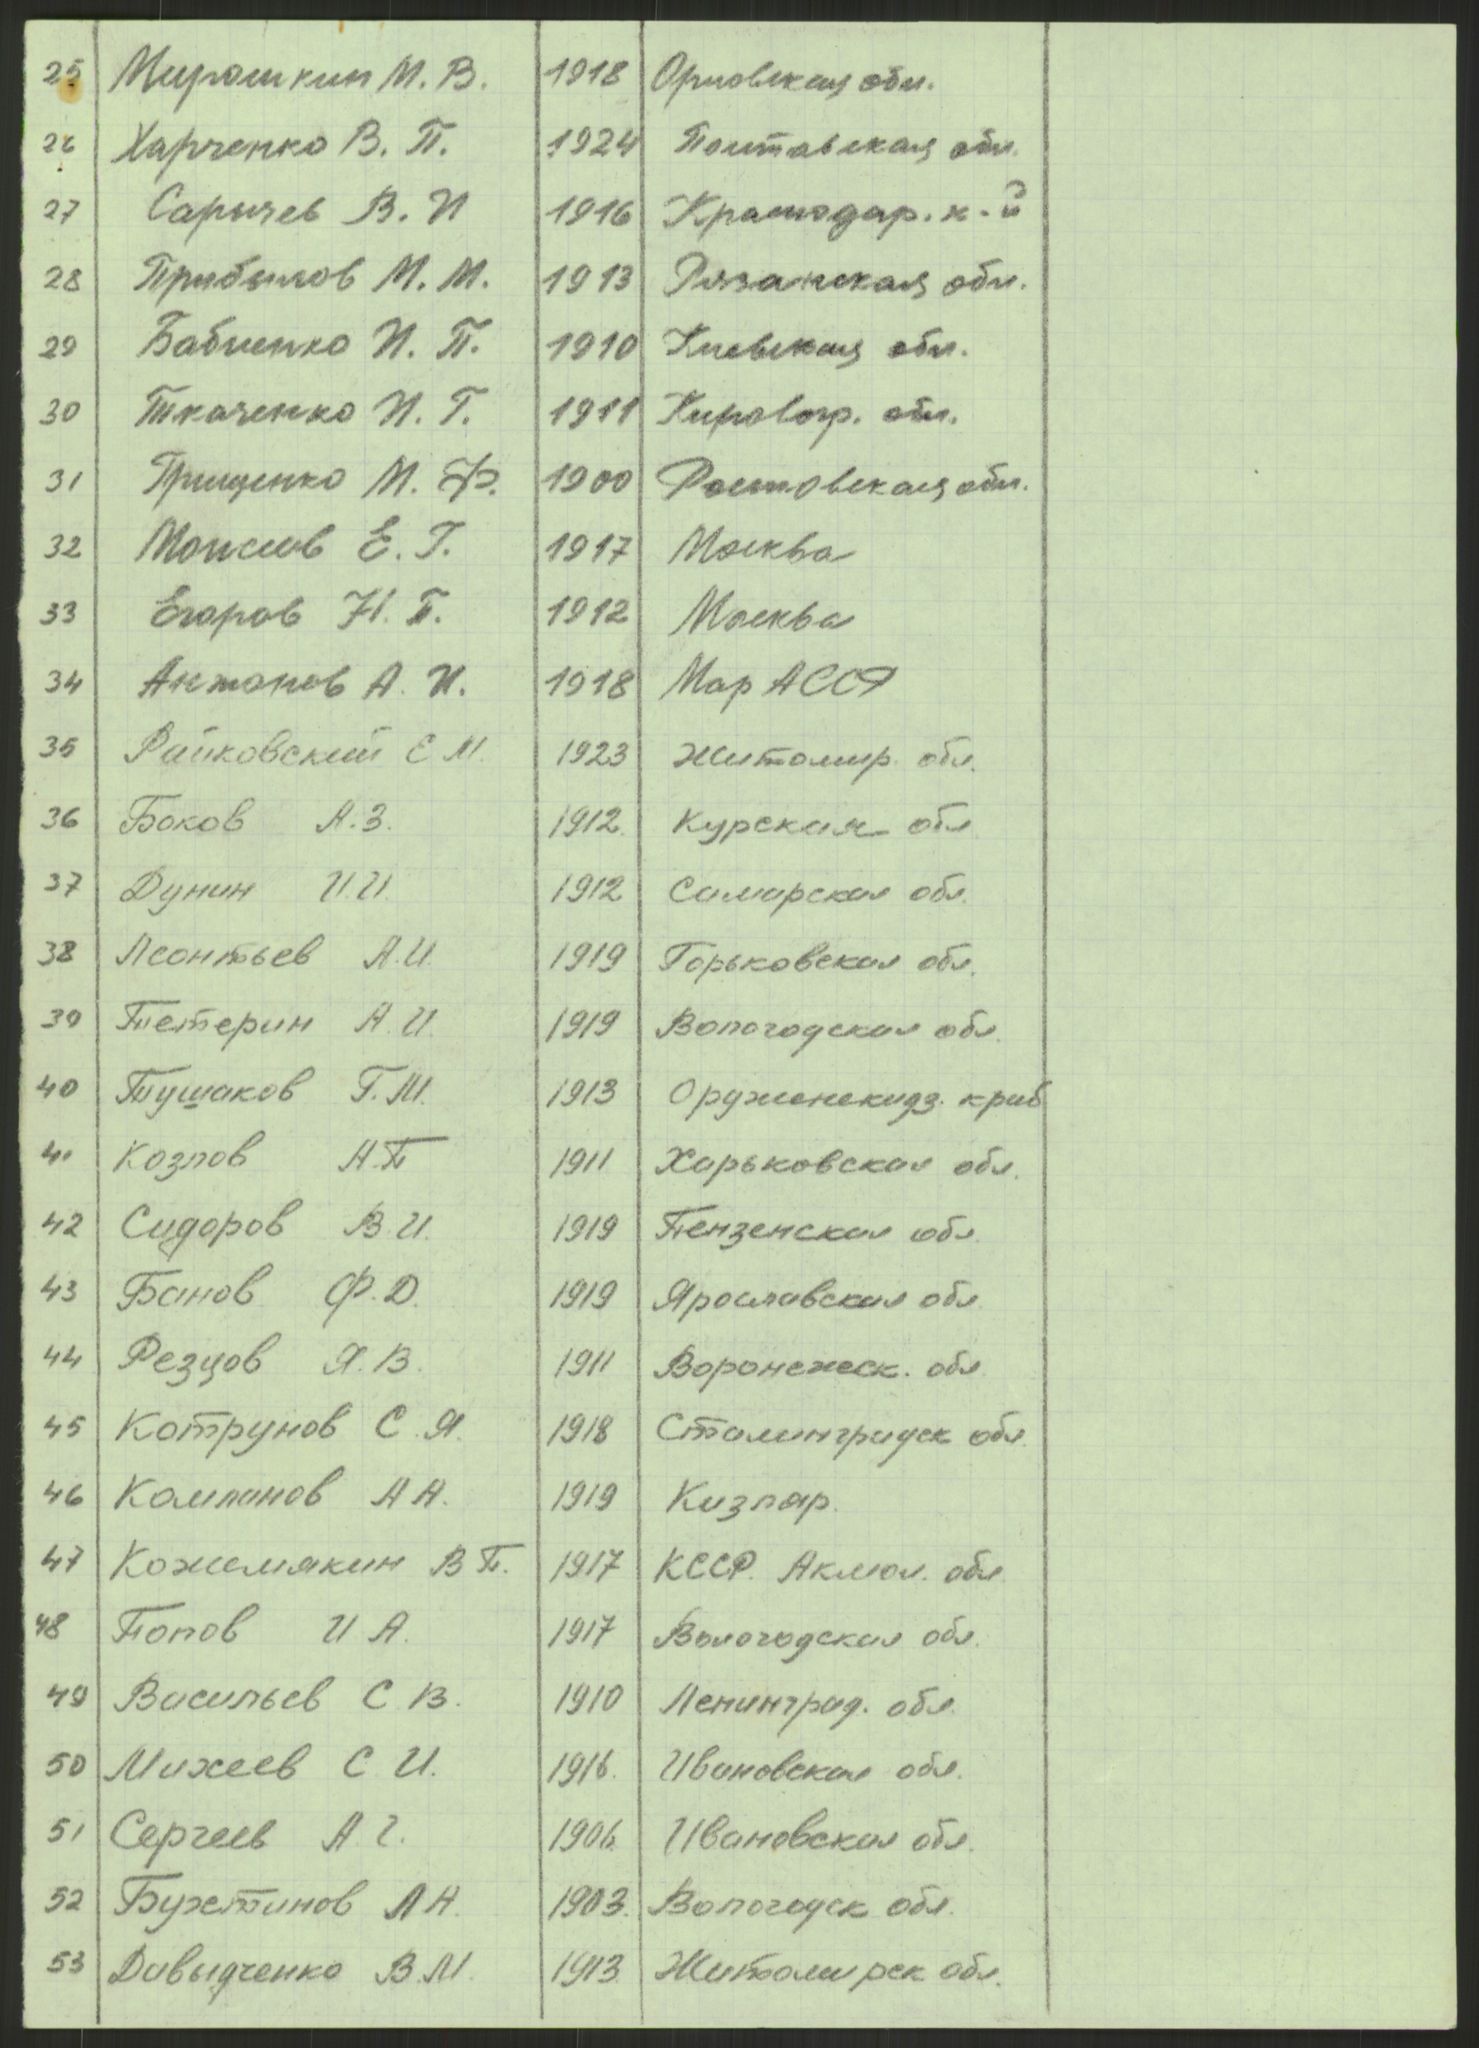 25 Мирошкин М. В. 1918 Орловская обл.
26 Харченко В. П. 1924 Полтавская обл.
27 Сарычев В. И 1916 Краснодар. к-й
28 Прибылов М. М. 1913 Рязанская обл.
29 Бабиенко И. П. 1910 Киевская обл.
30 Ткаченко И. Г. 1911 Кировогр. обл.
31 Грищенко М. Ф. 1900 Ростовская обл.
32 Моисеев Е. Г. 1917 Москва
33 Егоров Н. П. 1912 Москва
34 Антонов А. И. 1918 Мар АССР
35 Райковский Е М. 1923 Житомир. обл.
36 Боков А.З. 1912. Курская обл
37 Дунин И.И. 1912 Самарская обл.
38 Леонтьев А.И. 1919 Горьковская обл.
39 Тетерин А.И. 1919 Вологодская обл.
40 Тушаков Г.М. 1913 Оруженекидз. краб
41 Козлов А.П 1911 Харьковская обл.
42 Сидоров В.И. 1919 Пензенская обл.
43 Банов Ф.Д. 1919 Ярославская обл
44 Резцов Я.В. 1911 Воронежск. обл
45 Котрунов С.Я. 1918 Сталинградск обл.
46 Компанов А А. 1919 Кизляр.
47 Кожемякин В П. 1917 КССР. Акмол. обл
48 Попов И А. 1917 Вологодская обл.
49 Васильев С В. 1910 Ленинград. обл.
50 Михеев С И. 1916. Ивановская обл.
51 Сергеев А Г. 1906. Ивановская обл.
52 Бухтинов А Н. 1903. Вологодск обл.
53 Давыдченко В.М. 1913 Житомирск обл.